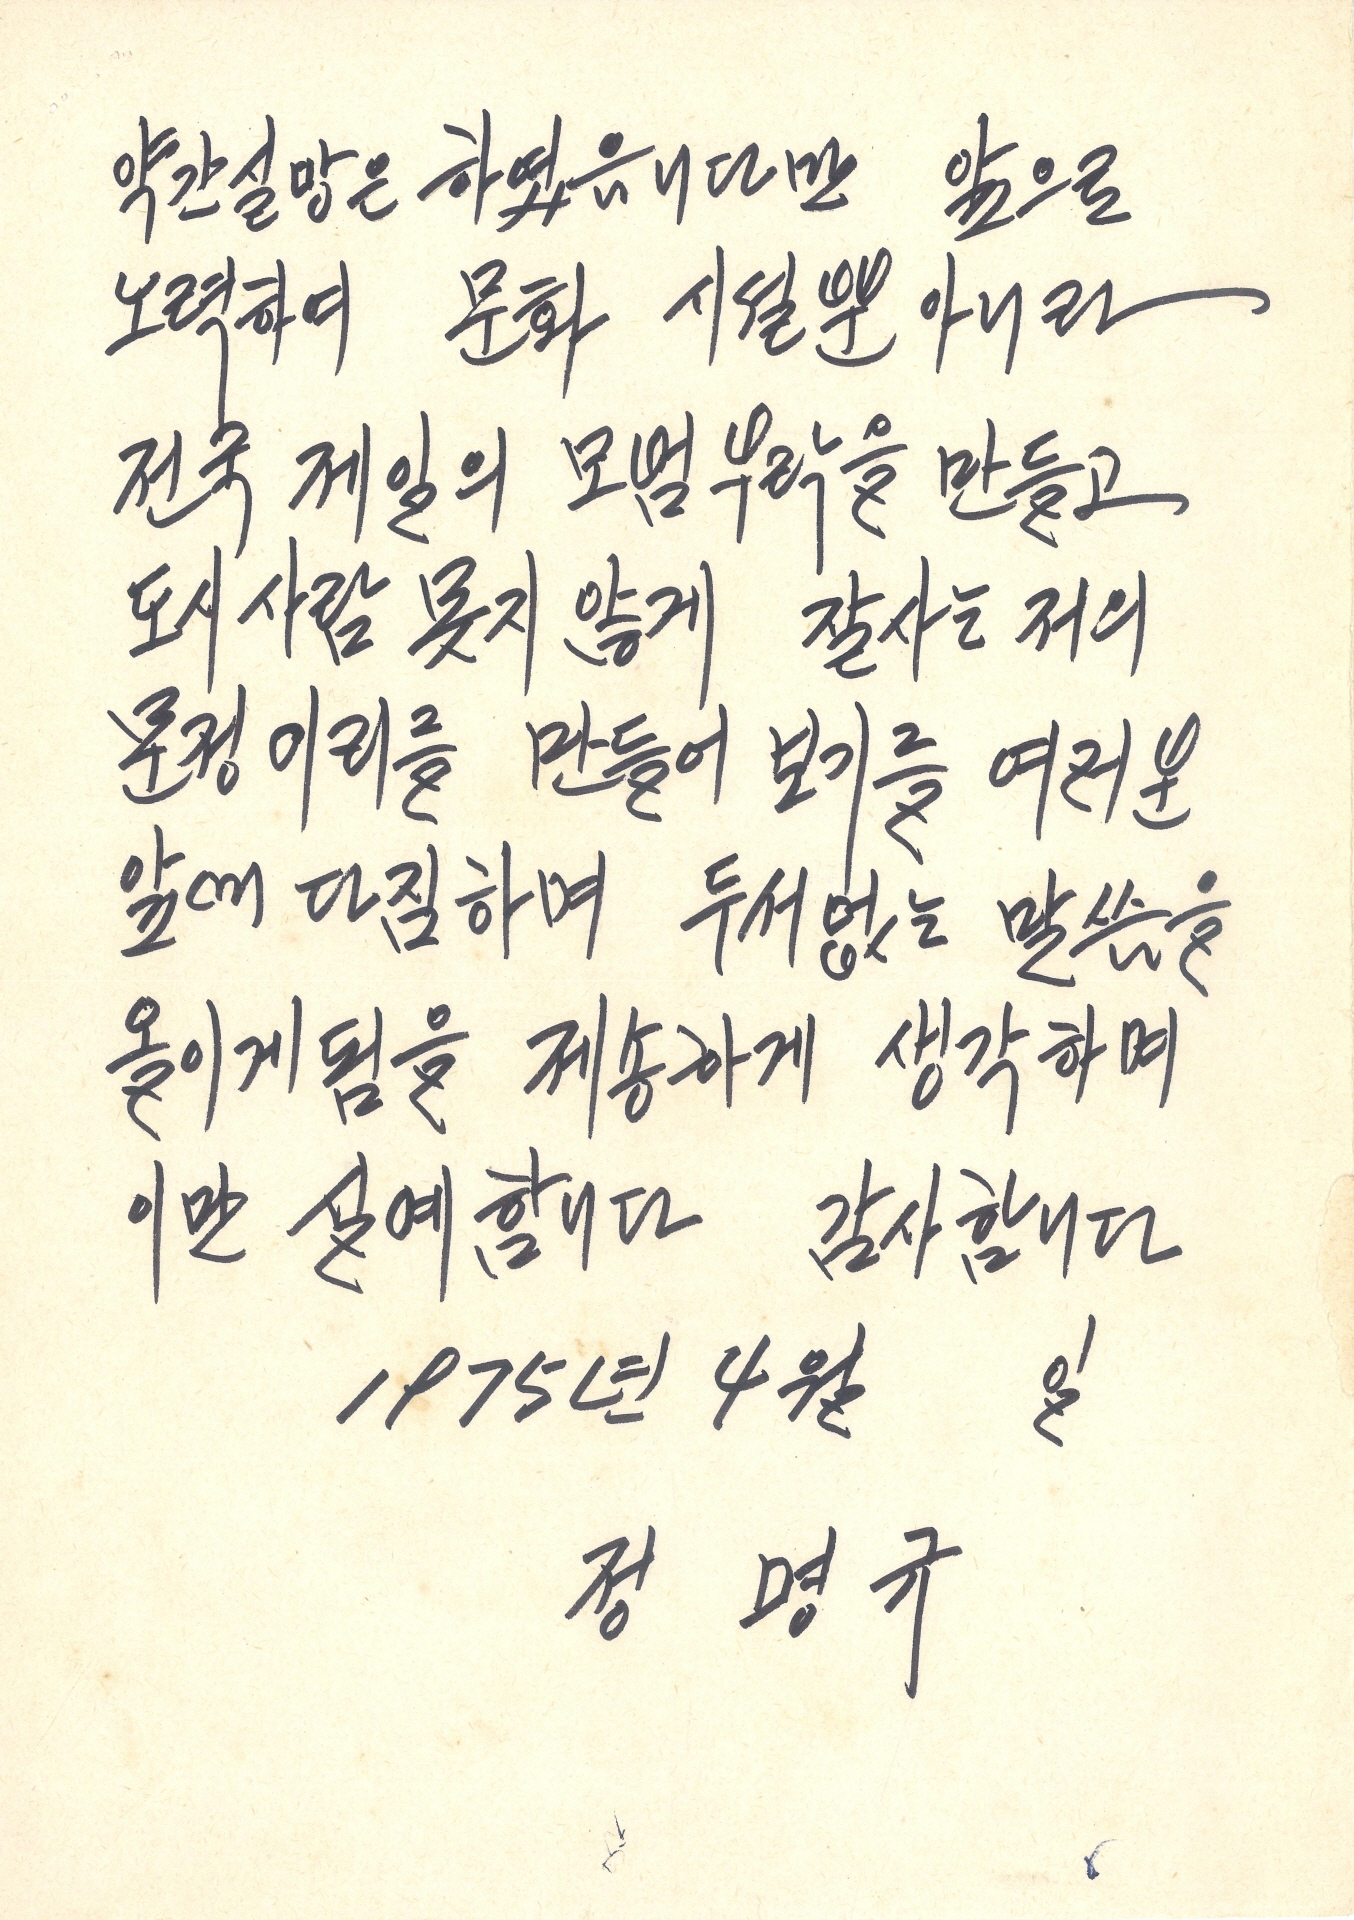 약간실망은 하였읍니다만 앞으로
노력하여 문화 시설뿐 아니라
전국 제일의 모범부락을 만들고
도시사람 못지 않게 잘사는 저의
문정 이리를 만들어 보기를 여러분
앞에 다짐하며 두서없는 말씀을
올이게됨을 제송하게 생각하며
이만 실예합니다 감사합니다
1975년 4월 일
정 명 규